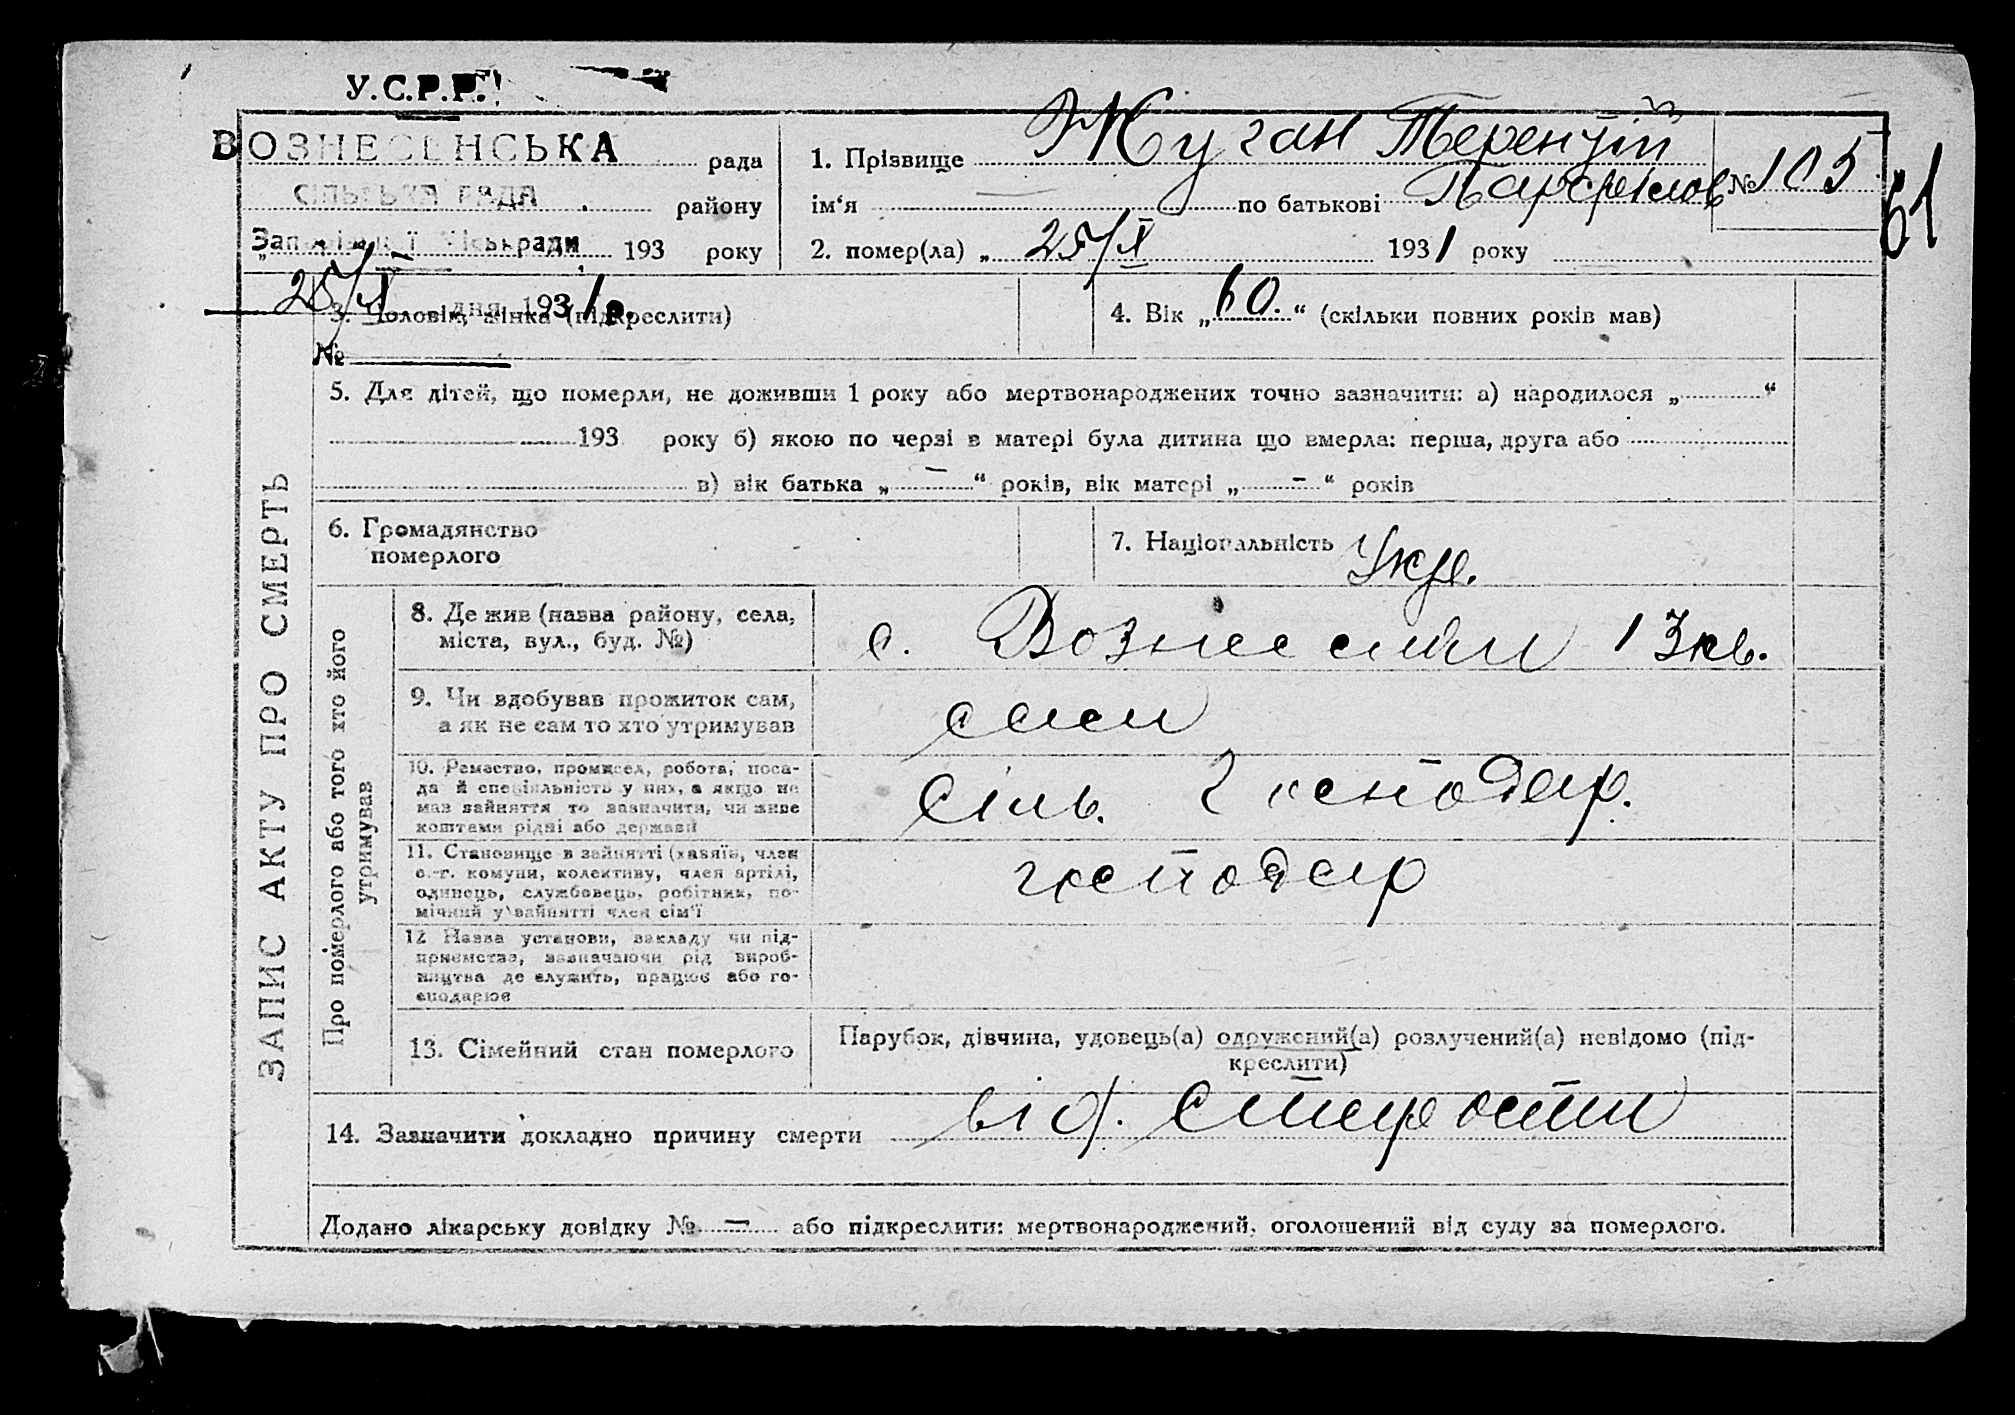 У.С.Р.Р.
ВОЗНЕСЕНСЬКА рада
СІЛЬСЬКА РАДА району
Запорізької Міськради 193 року
25/X дня 1931 р.
№
1. Прізвище Жуган Терентій
ім‘я по батькові Парфенов
№ 105
61
2. помер(ла) „ 25/X 1931 року
3. Чоловік, жінка (підкреслити)
4. Вік „60.“ (скільки повних років мав)
5. Для дітей, що померли, не доживши 1 року або мертвонароджених точно зазначити: а) народилося „ “
193 року б) якою по черзі в матері була дитина що вмерла: перша, друга або
в) вік батька „ – “ років, вік матері „ – “ років
6. Громадянство
померлого
7. Національність Укр.
ЗАПИС АКТУ ПРО СМЕРТЬ
Про померлого або того хто його
утримував
8. Де жив (назва району, села,
міста, вул., буд. №)
с. Вознесенки 13 кв.
9. Чи вдобував прожиток сам,
а як не сам то хто утримував
сам
10. Ремество, промисел, робота, поса-
да й спеціяльність у них, а якщо не
мав зайняття то зазначити, чи живе
коштами рідні або держави
Сіль. Господар.
11. Становище в зайнятті (хазяїн, член
с.-г. комуни, колективу, член артілі,
одинець, службовець, робітник, по-
мічний у зайнятті член сім‘ї
господар
12 Назва установи, закладу чи під-
приємства, зазначаючи рід вироб-
ництва де служить, працює або го-
сподарює
13. Сімейний стан померлого
Парубок, дівчина, удовець(а) одружений(а) розлучений(а) невідомо (під-
креслити)
14. Зазначити докладно причину смерти від. старости
Додано лікарську довідку № – або підкреслити: мертвонароджений, оголошений від суду за померлого.